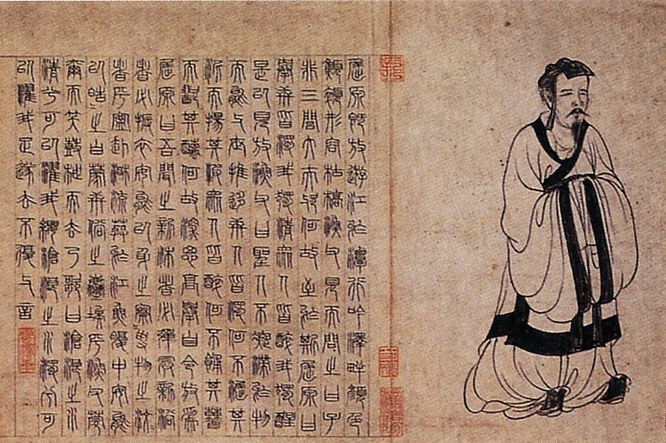 屈原既放遊江於潭行吟澤畔顏色
顦顇形容枯槁漁父見而問之曰子
非三閭大夫與何故至於斯屈原曰
舉世皆濁我獨清眾人皆醉我獨醒
是以見放漁父曰聖人不凝滯於物
而能與世推移世人皆濁何不淈其
泥而揚其波眾人皆醉何不餔其糟
而歠其醨何故深思高舉自令放為
屈原曰吾聞之新沐者必彈冠新浴
者必振衣安能以身之察察受物之汶
汶者乎寧赴湘流葬於江魚腹中安能
以皓皓之白蒙世俗之塵埃乎漁父莞
爾而笑鼓枻而去乃歌曰滄浪之水
清兮可以濯我纓滄浪之水濁兮可
以濯我足遂去不復與言